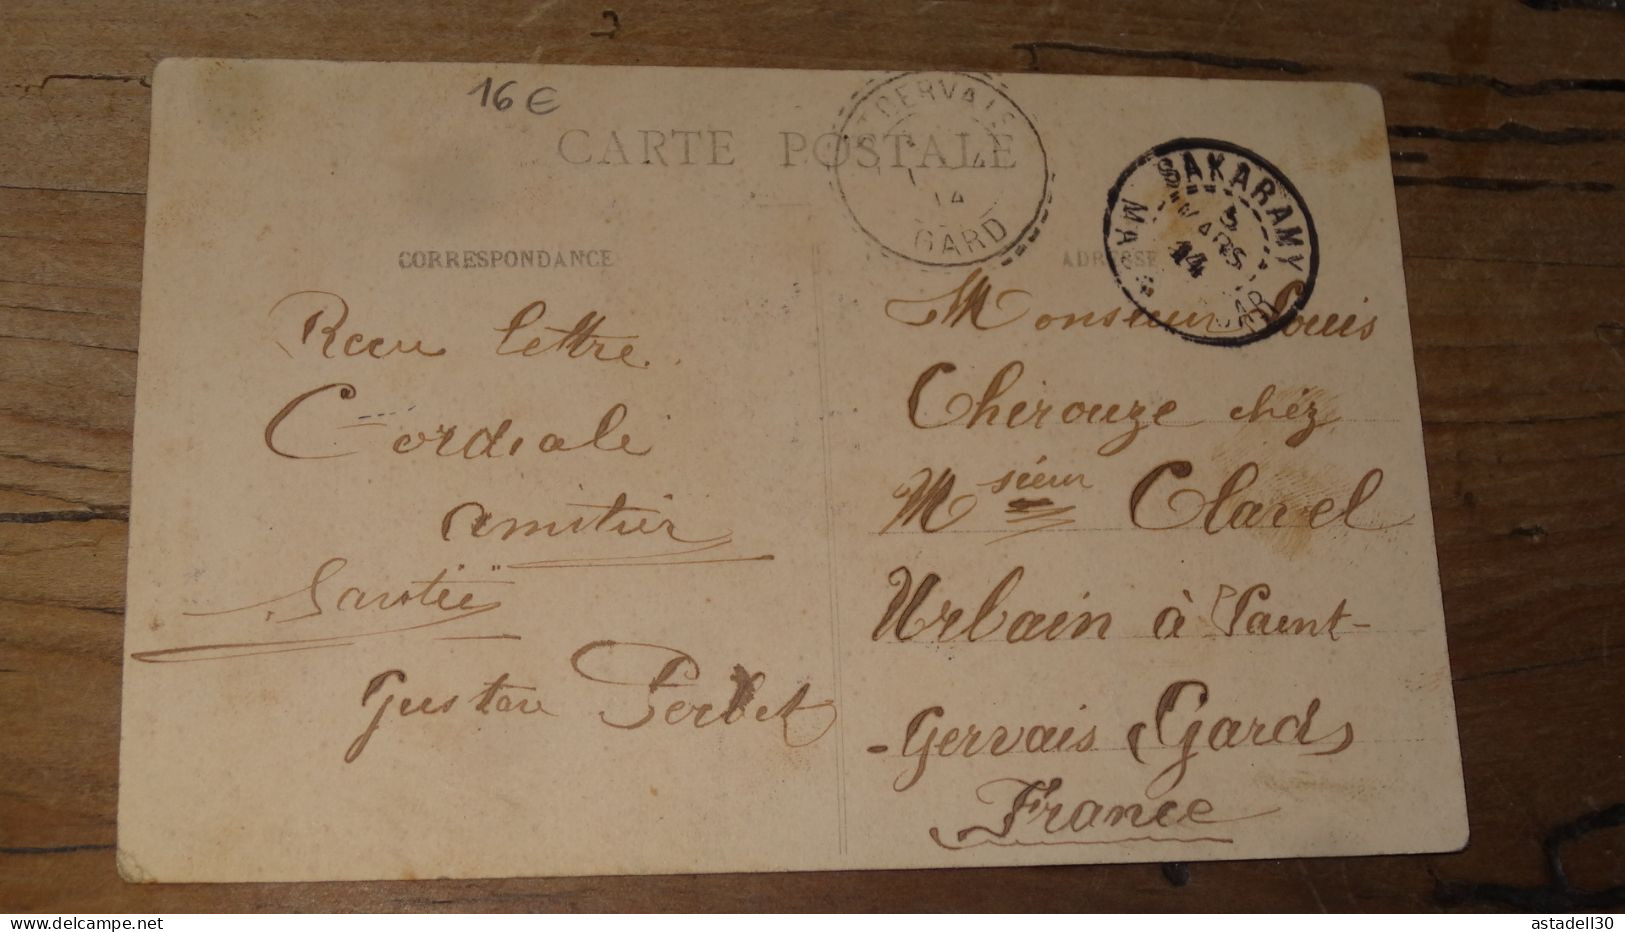 16€
CARTE POSTALE
ST GERVAIS
14
GARD
SAKARAMY
MARS
14
CORRESPONDANCE
ADRESSE
Recu lettre
Cordiale
amitier
Gustave Perbet
Monsieur Louis
Cherouze chéz
Msieur Clarel
Urbain à Saint-
-Gervais Gard
France
astadell30